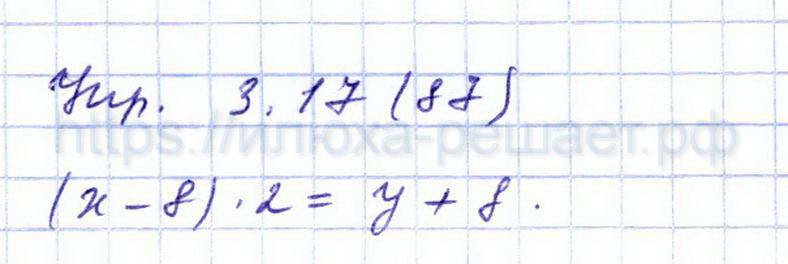 Упр. 3.17 (87)
https://илюха-решает.рф
(x - 8) · 2 = y + 8.